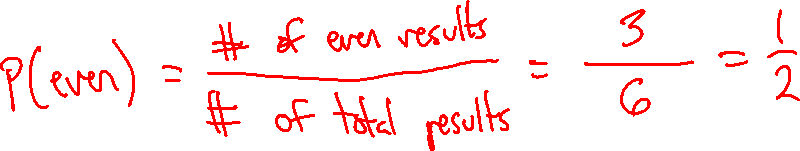 P(even) = # of even results / # of total results = 3/6 = 1/2